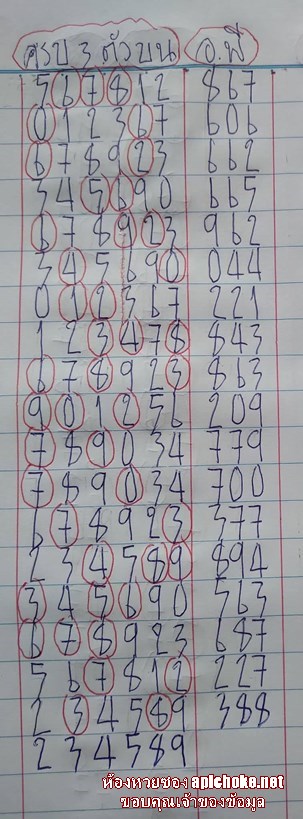 ครบ 3 ตัวบน อ.พี
5 6 7 8 1 2 867
0 1 2 3 6 7 606
6 7 8 9 2 3 662
3 4 5 6 9 0 665
6 7 8 9 2 3 962
3 4 5 6 9 0 044
0 1 2 3 6 7 221
1 2 3 4 7 8 843
6 7 8 9 2 3 863
9 0 1 2 5 6 209
7 8 9 0 3 4 779
7 8 9 0 3 4 700
6 7 8 9 2 3 377
2 3 4 5 8 9 894
3 4 5 6 9 0 563
6 7 8 9 2 3 687
5 6 7 8 1 2 227
2 3 4 5 8 9 388
2 3 4 5 8 9
ห้องหวยซอง apichoke.net
ขอบคุณเจ้าของข้อมูล